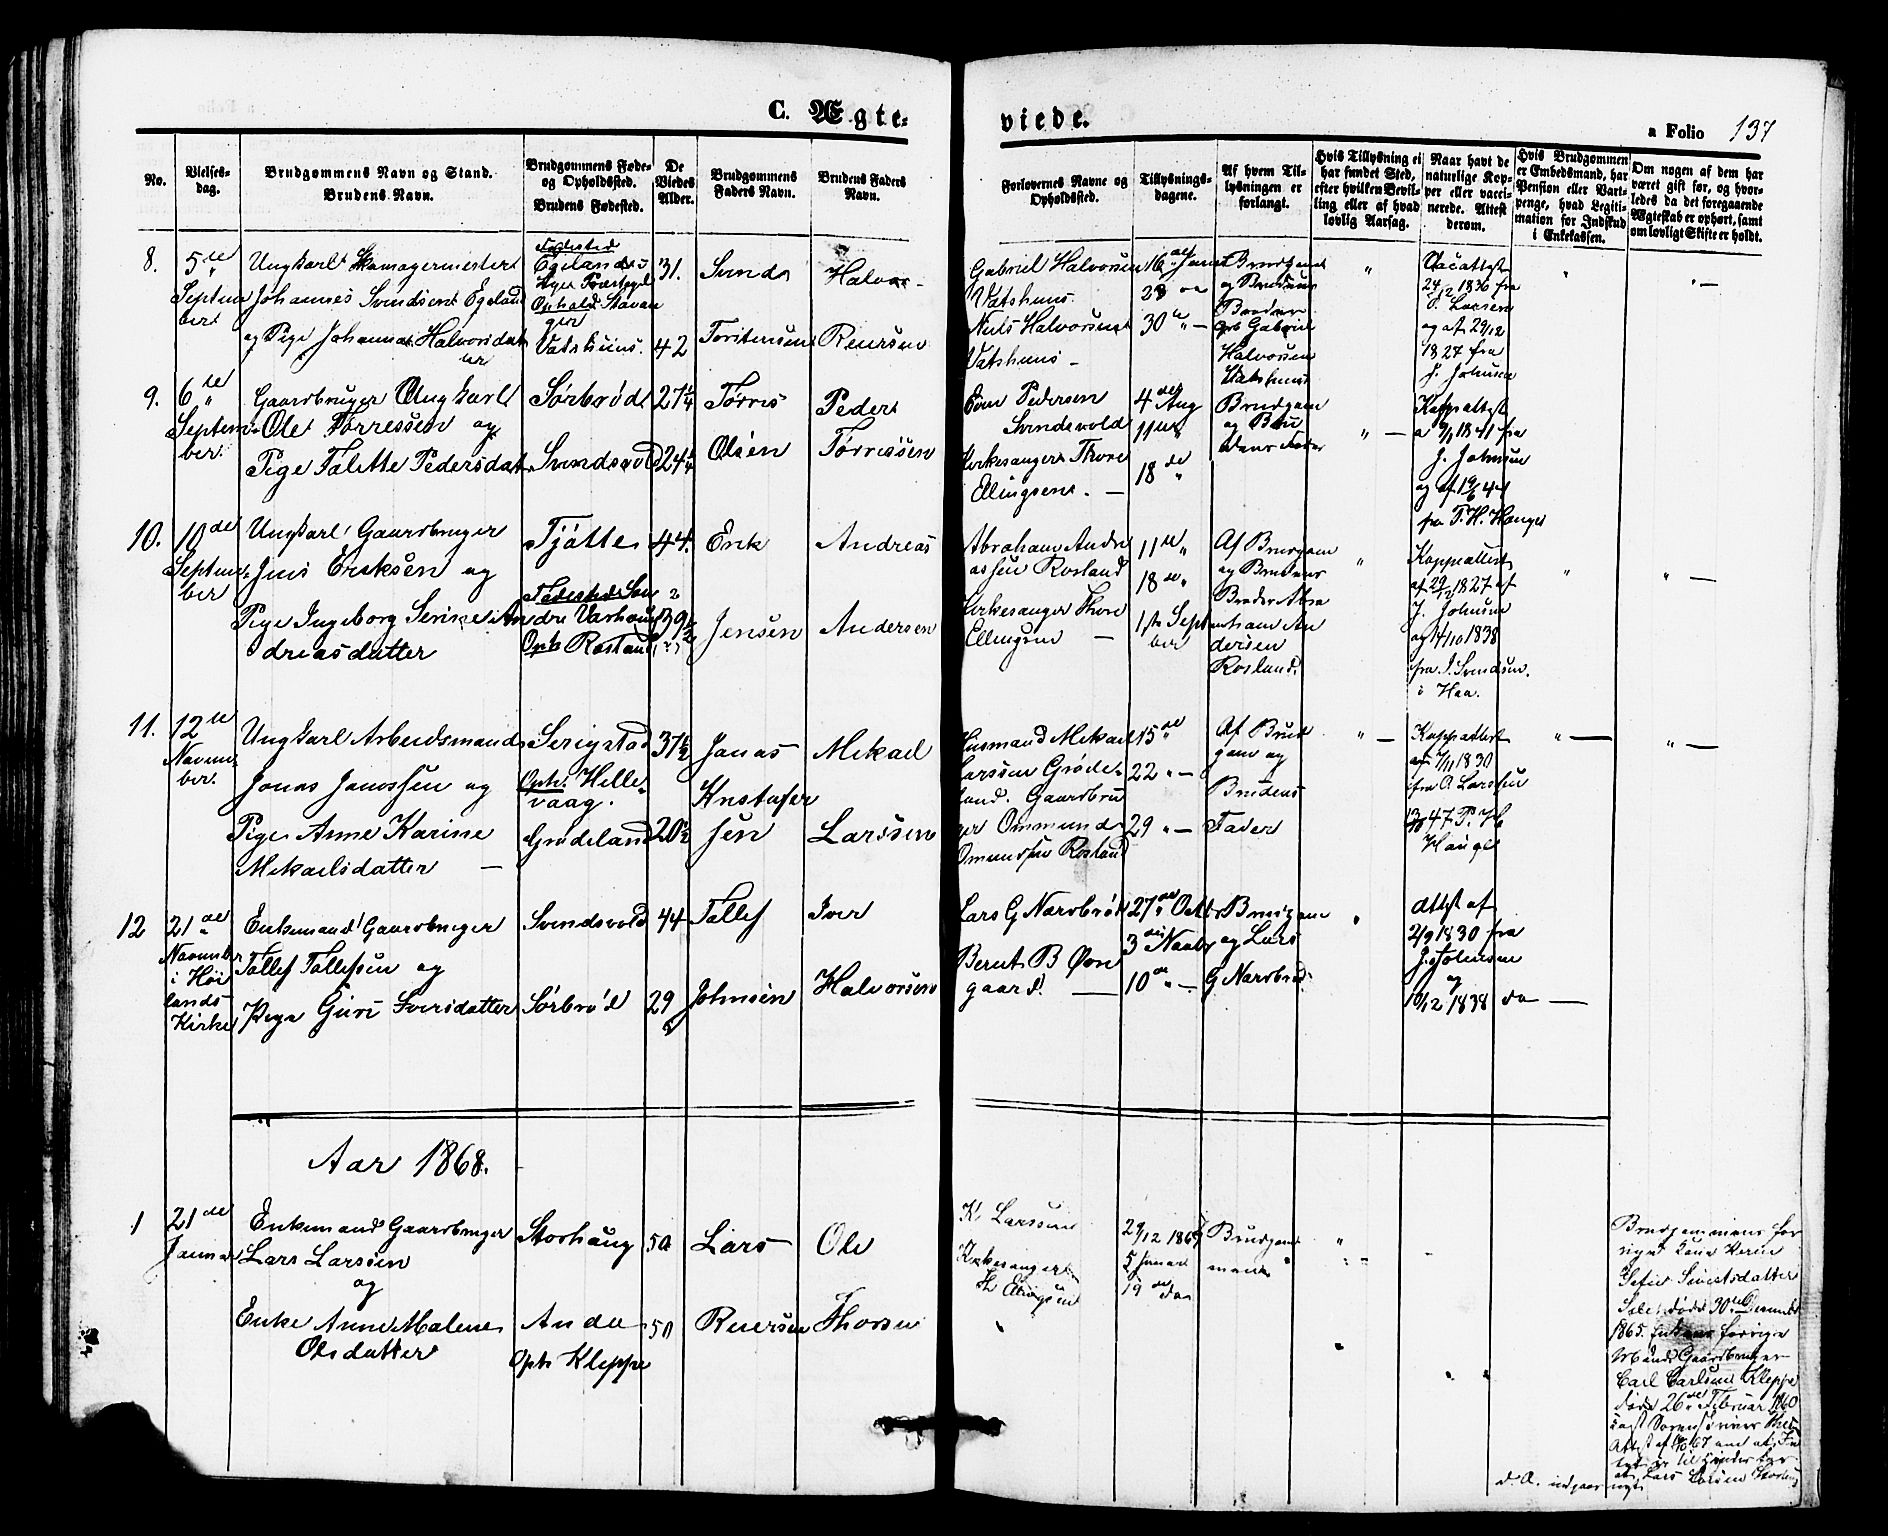 C. Ægte=
viede.
a Folio 137
No.
Vielses-
dag.
Brudgommens Navn og Stand.
Brudens Navn.
Brudgommens Føde-
og Opholdssted.
Brudens Fødested.
De
Viedes
Alder.
Brudgommens
Faders Navn.
Brudens Faders
Navn.
Forlovernes Navne og
Opholdssted.
Tillysnings-
dagene.
Af hvem Til-
lysningen er
forlangt.
Hvis Tillysning ei
har fundet Sted,
efter hvilken Bevil-
ling eller af hvad
lovlig Aarsag.
Naar havt de
naturlige Kop-
per eller vacci-
nerede. Attest
derom.
Hvis Brudgommen
er Embedsmand, har
Pension eller Vart-
penge, hvad Legiti-
mation for Indskud
i Enkekassen.
Om nogen af dem har
været gift før, og hvor-
ledes da det foregaaende
Ægteskab er ophørt, samt
om lovligt Skifte er holdt.
8.
5te
Septem
ber
Ungkarl Skomagermester
Johannes Svendsen Egeland
og Pige Johanna Halvorsdat
ter
Fødested
Egeland
Ophold Stavan
ger
Vatshuus.
31.
42
Svend
Torstensen
Halvor
Reiersen
Gabriel Halvorsen
Vatshuus.
Niels Halvorsen
Vatshuus -
16de
23
30
Brudgom
og Brudens
Broder
Gabriel
Halvorsen
Vatshuus
Vacattest
24/12 1836 fra
S. Larsen
og af 29/12
1827 fra
J. Johnsen
9.
6te
Septem-
ber.
Gaardbruger Ungkarl
Ole Tørressen og
Pige Talette Pedersdat
Sørbrød
Svendsvold
27 1/4
24 1/4
Tørris
Olsen
Peder
Tørrissen
Peder Pedersen
Svindsvold
Kirkesanger Thore
Ellingsen. -
4de Aug
11te
18de
Brudgom
og Bru
dens Fader
Koppattest
1841 fra
J. Johnsen
og af 19/6 44
fra P. H. Hauge
10.
10de
Septem-
ber
Ungkarl Gaardbruger
Jens Eriksen og
Pige Ingeborg Serine An
dreasdatter
Tjøtte
Fødested Søn
dre Varhoug
Oph. Rosland
44.
39 1/2
Erik
Jensen
Andreas
Andersen
Abraham Andre
assen Rosland
Kirkesanger Thore
Ellingsen -
11te
18de
1ste Septem
ber
Af Brudgom
og Brudens
Broder Abra
ham An
dersen
Rosland.
Koppeattest
af 29/12 1827 af
J. Johnsen
og 14/10 1838
fra J. Svendsen.
i Haa.
11.
12te
Novem
ber.
Ungkarl Arbeidsmand
Jonas Janssen og
Pige Anne Karine
Mikaelsdatter -
Serigstad
Oph. Helle-
vaag.
Grødeland
37 1/2
20 1/2
Jonas
Kristofer
sen
Mikael
Larssen
Husmand Mikael
Larssen Grøde-
land. Gaardbru
ger Ommund
Omundsen Rosland
15de
22 " -
29 " -
Af Brud
gom og
Brudens
Fader
Koppattest
af 7/11 1830
fra O. Larssen
47 P. H.
Hauge
12
21de
November
i Høi
lands
Kirke
Enkemand Gaardbruger
Tollef Tollefsen og
Pige Guri Iversdatter
Svindsvold
Sørbrød
44
29
Tollef
Johnsen
Iver
Halvorsen
Lars G Nærbrød
Bernt B Øvre
gaard. -
27de Octbr
3die Novbr
10de " -
Brudgom
og Lars
G Nærbrød
Attest af
2/9 1830 fra
J. Johnsen
og
10/12 1838
do -
Aar 1868.
1
21de
Januar
Enkemand Gaardbruger
Lars Larsen
og
Enke Anne Malene
Olsdatter
Storhaug
Anda
Oph. Kleppe
50
50
Lars
Reiersen
Ole
Thorsen
K. Larssen
Kirkesanger
Th Ellingsen
29/12 1867
5 Januar
19de do
Brudgom
men
Brudgommens for
rige Kone Karen
Sofie Sivertsdatter
Sele døde 30te December
1865. Enkens forrige
Mand Gaardbruger
Carl Carlsen Kleppe
døde 26de Februar 1860
Lars Larsen Storhaug